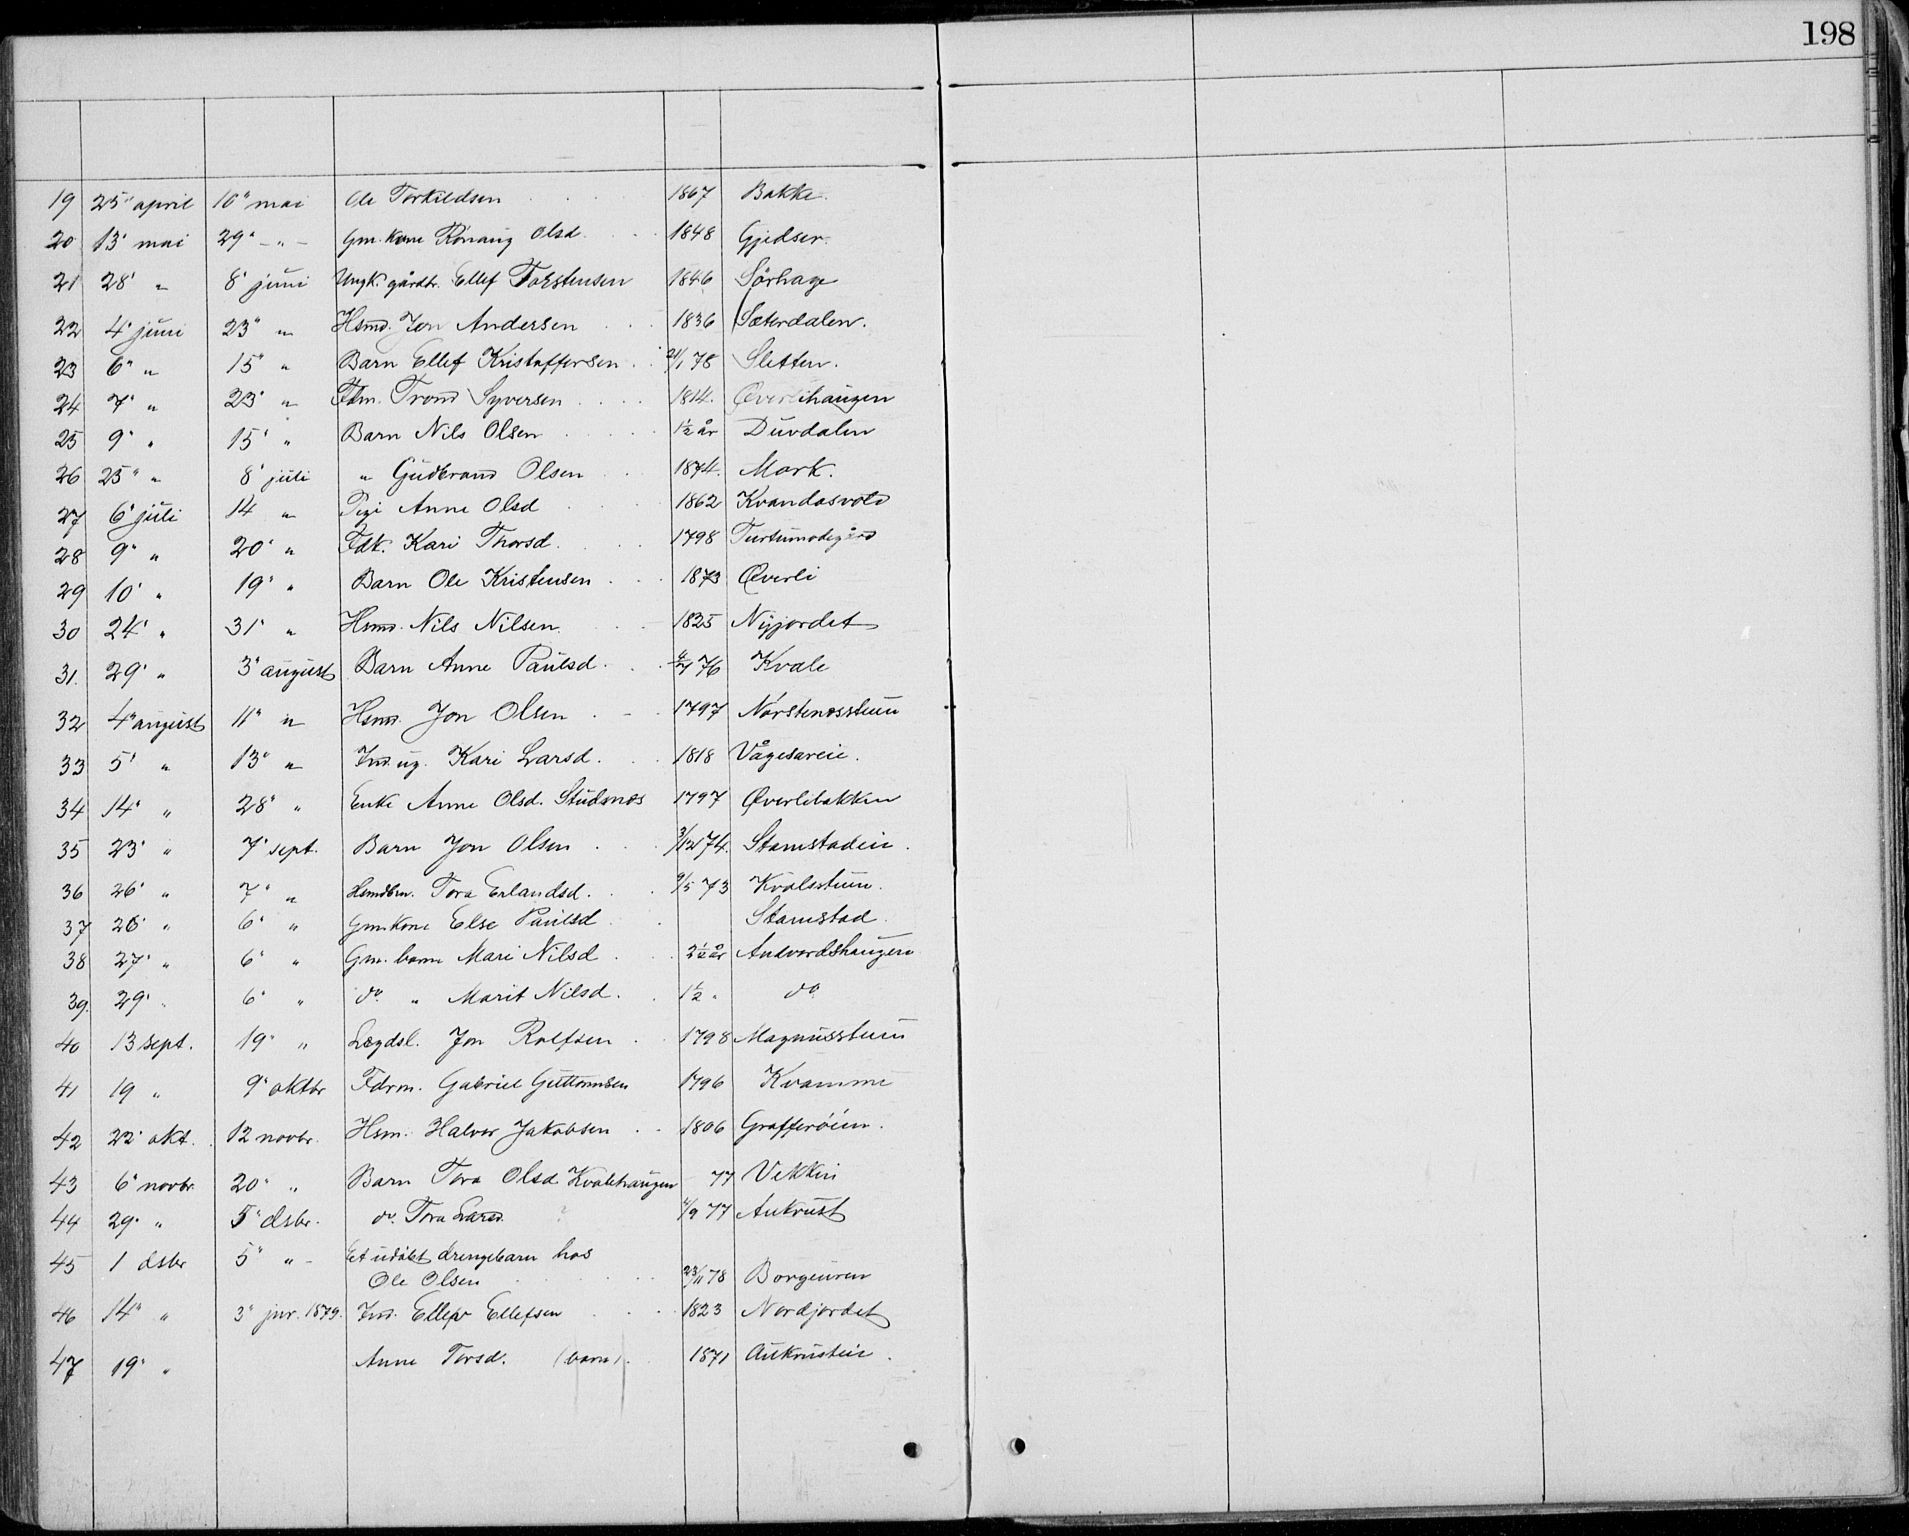 198
19 25" april 16" mai Ole Torkildsen 1867 Bakke.
20 13' mai 29" - " - Gm. kone Rönaug Olsd. 1848 Gjedser.
21 28' " 8' juni Ungk. gårdbr. Ellef Torstensen 1846 Sörhage
22 4' juni 23" " Hsmd. Jon Andersen 1836 Sæterdalen.
23 6" " 15" " Barn Ellef Kristoffersen 21/1 78 Sletten.
24 7" " 23' " Fdm. Trond Syversen 1814. Øverlihaugen
25 9' " 15' " Barn Nils Olsen 1½ år Duvdalen
26 25" " 8' juli " Gudbrand Olsen 1874. Mork.
27 6' juli 14 " Pigi Anne Olsd 1862 Kvandasvold
28 9" " 20' " Fdk. Kari Thorsd. 1798
29 10' " 19' " Barn Ole Kristensen 1873 Øverli
30 24' " 31' " Hsmd. Nils Nilsen 1825 Nyjordet
31. 29' " 3' august Barn Anne Paulsd. 4/7 76 Kvale
32 4" august 11" " Hsmd. Jon Olsen 1797 Norstenesstuen
33 5' " 13" " Ind. ug. Kari Larsd. 1818 Vågesareie.
34 14" " 28" " Enke Anne Olsd. Studsnæs 1797 Øverlibakken
35 23' " 7' sept. Barn Jon Olsen 3/12 74. Stamstadeie.
36 26' " 7" " Hsmdbrn. Tora Erlandsd. 9/5 73 Kvalsstuen.
37 26' " 6' " Gm. kone Else Paulsd Stamstad.
38 27' " 6" " Gm. barn Mari Nilsd. 2½ år Andvordshaugen
39. 29' " 6" " do " Marit Nilsd. 1½ " do
40 13 sept. 19" " Lægdsl. Jon Rolfsen 1798 Magnusstuen
41 19 " 9" oktbr Fdrm. Gabriel Guttormsen 1796 Kvamme
42 22' okt. 12 novbr. Hsm. Halvor Jakobsen 1806 Grafferöien.
43 6" novbr. 20" " Barn Tora Olsd Kvalehaugen 77 Vekkin
44 29" " 5" dsbr. do. Tora Larsd. ? /9 77 Aukrust
45 1 dsbr 5" " - Et udöbt drengebarn hos
Ole Olsen 23/11 78 Borgeuren
46 14" " 3" jnr. 1879. Ind. Ellef Ellefsen 1823 Nordjordet
47 19" " Anne Torsd. (barn). 1871 Aukrusteie.